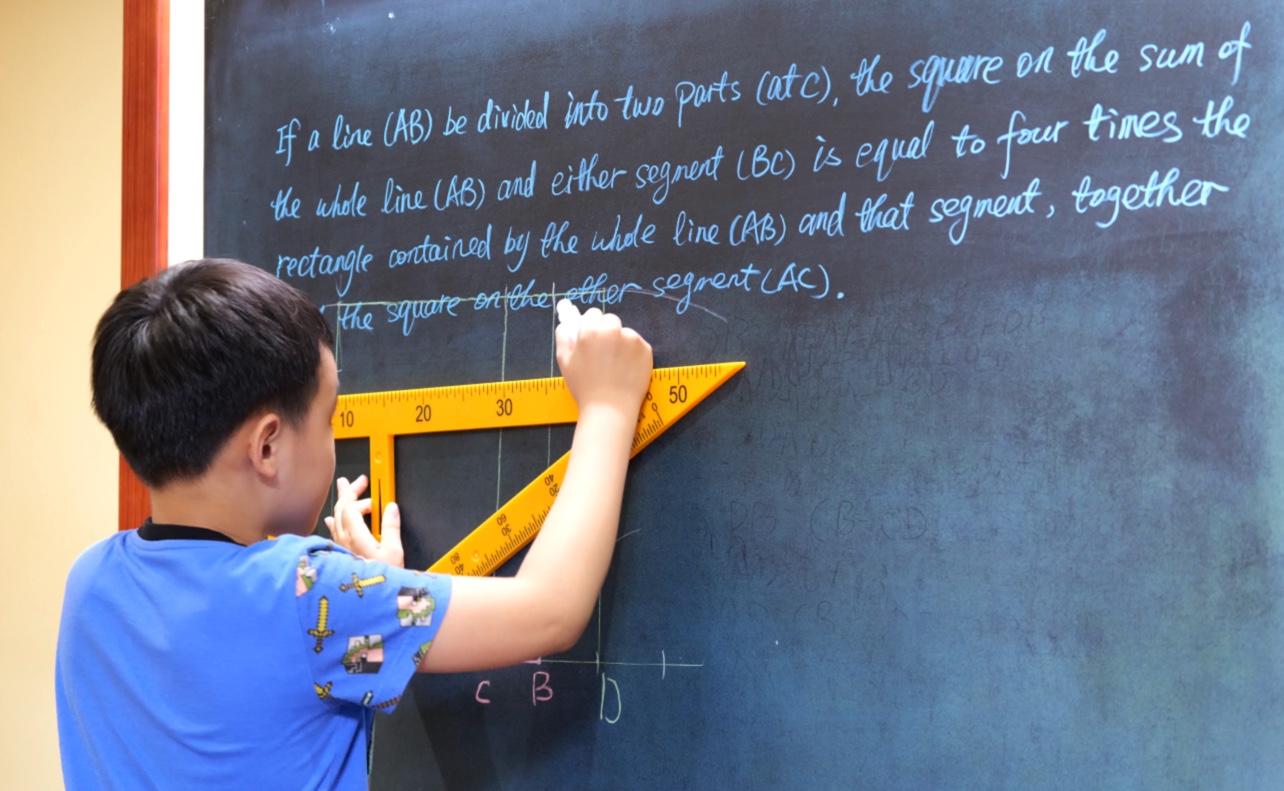 If a line (AB) be divided into two parts (at C), the square on the sum of
the whole line (AB) and either segment (BC) is equal to four times the
rectangle contained by the whole line (AB) and that segment, together
the square on the other segment (AC).
10 20 30 50
C B D